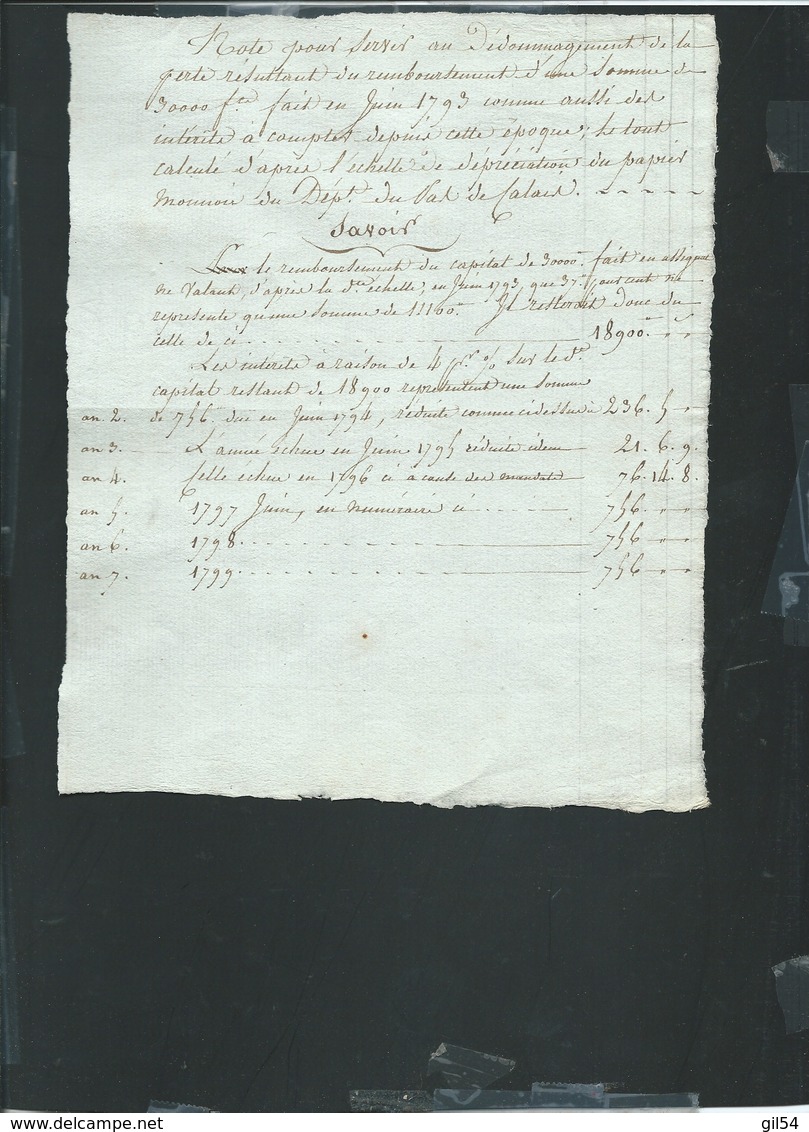 Note pour servir au Dédommagement de la
perte résultant du remboursement d'une Somme de
30000 f.cs fait en Juin 1793 comme aussi des
intérêts à compter depuis cette époque; le tout
calculé d'après l'échelle de dépréciation du papier
Monnoie du Dép.t du Pas de Calais.
Savoir
le remboursement du capital de 30000 fait en assignat
ne Valant, d'après la d.te échelle, en Juin 1793, que 37 pour cent ne
represente qu'une somme de 11100. Il resteroit donc du
celle de ci 18900. " "
Les intérêts à raison de 4 p.r % sur le d.t
capital restant de 18900 representent une somme
an 2. de 756. due en Juin 1794, réduite comme ci dessus à 236. 5 "
an 3. L'année échue en Juin 1795 réduite idem 21. 6. 9.
an 4. Celle échue en 1796 ci à cause des mandats 76. 14. 8.
an 5. 1797 Juin, en numéraire ci 756. " "
an 6. 1798. 756 " "
an 7. 1799. 756 " "
gil54